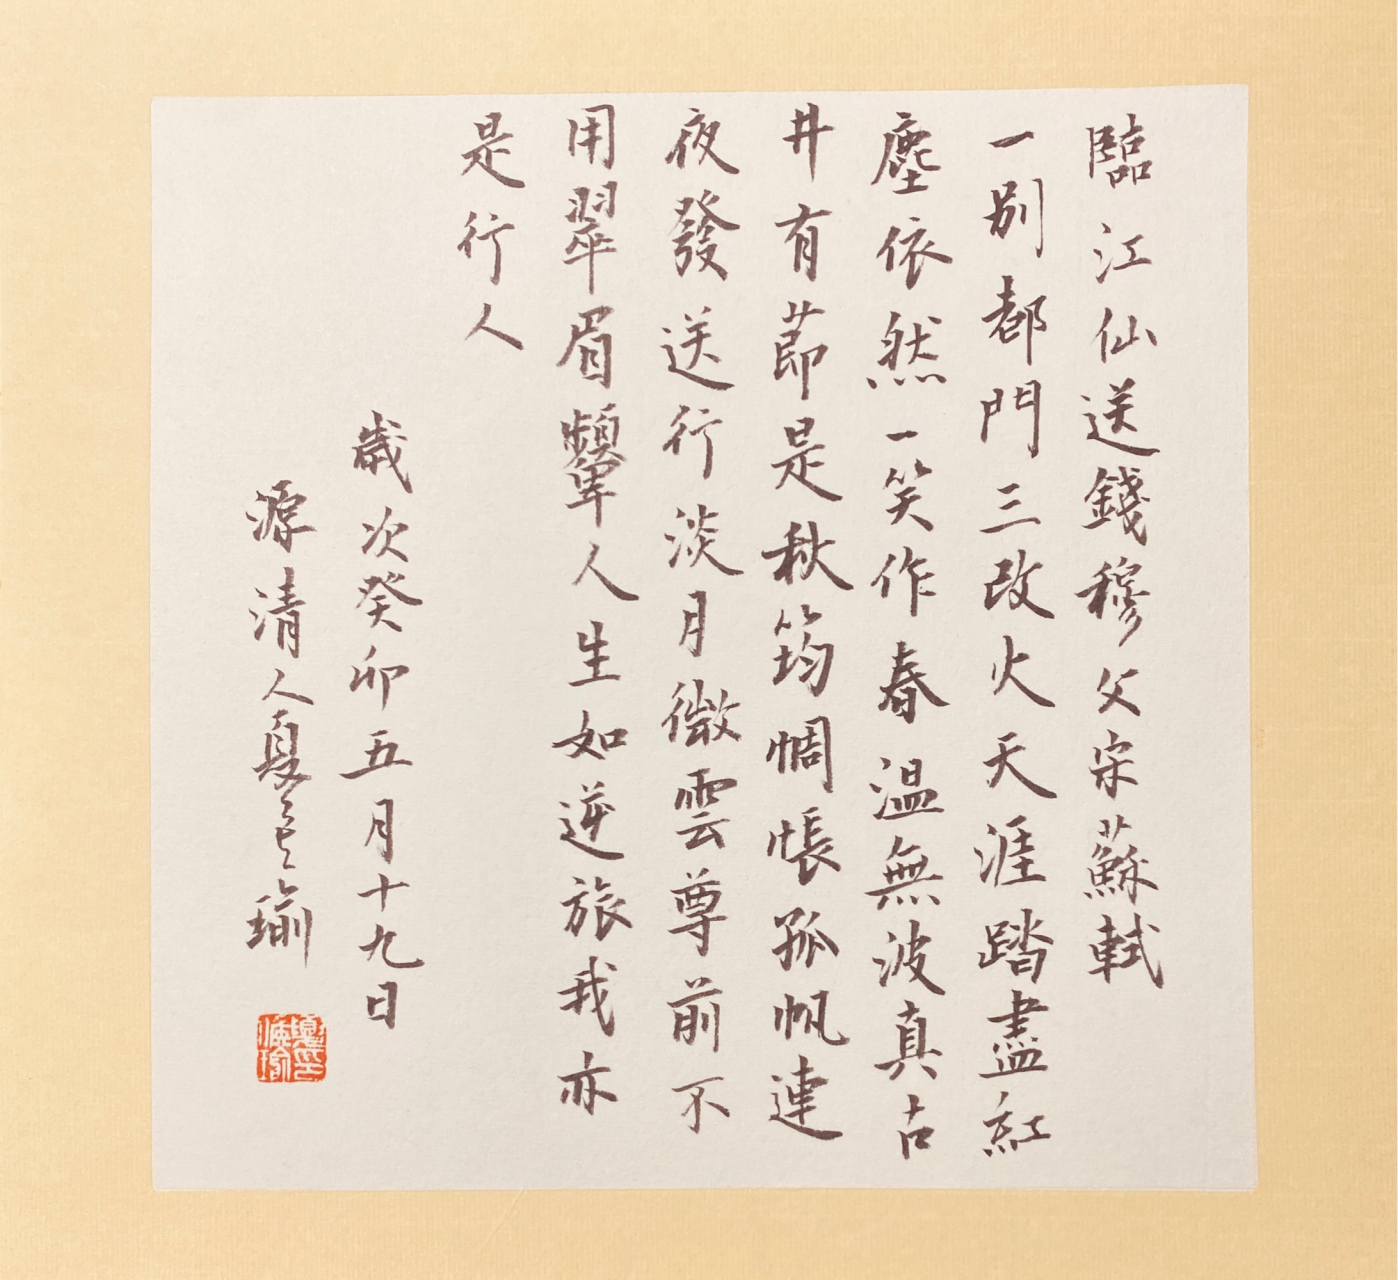 臨江仙送錢穆父宋蘇軾
一別都門三改火天涯踏盡紅
塵依然一笑作春溫無波真古
井有莭是秋筠惆悵孤帆連
夜發送行淡月微雲尊前不
用翠眉顰人生如逆旅我亦
是行人
歲次癸卯五月十九日
源清人夏瑜